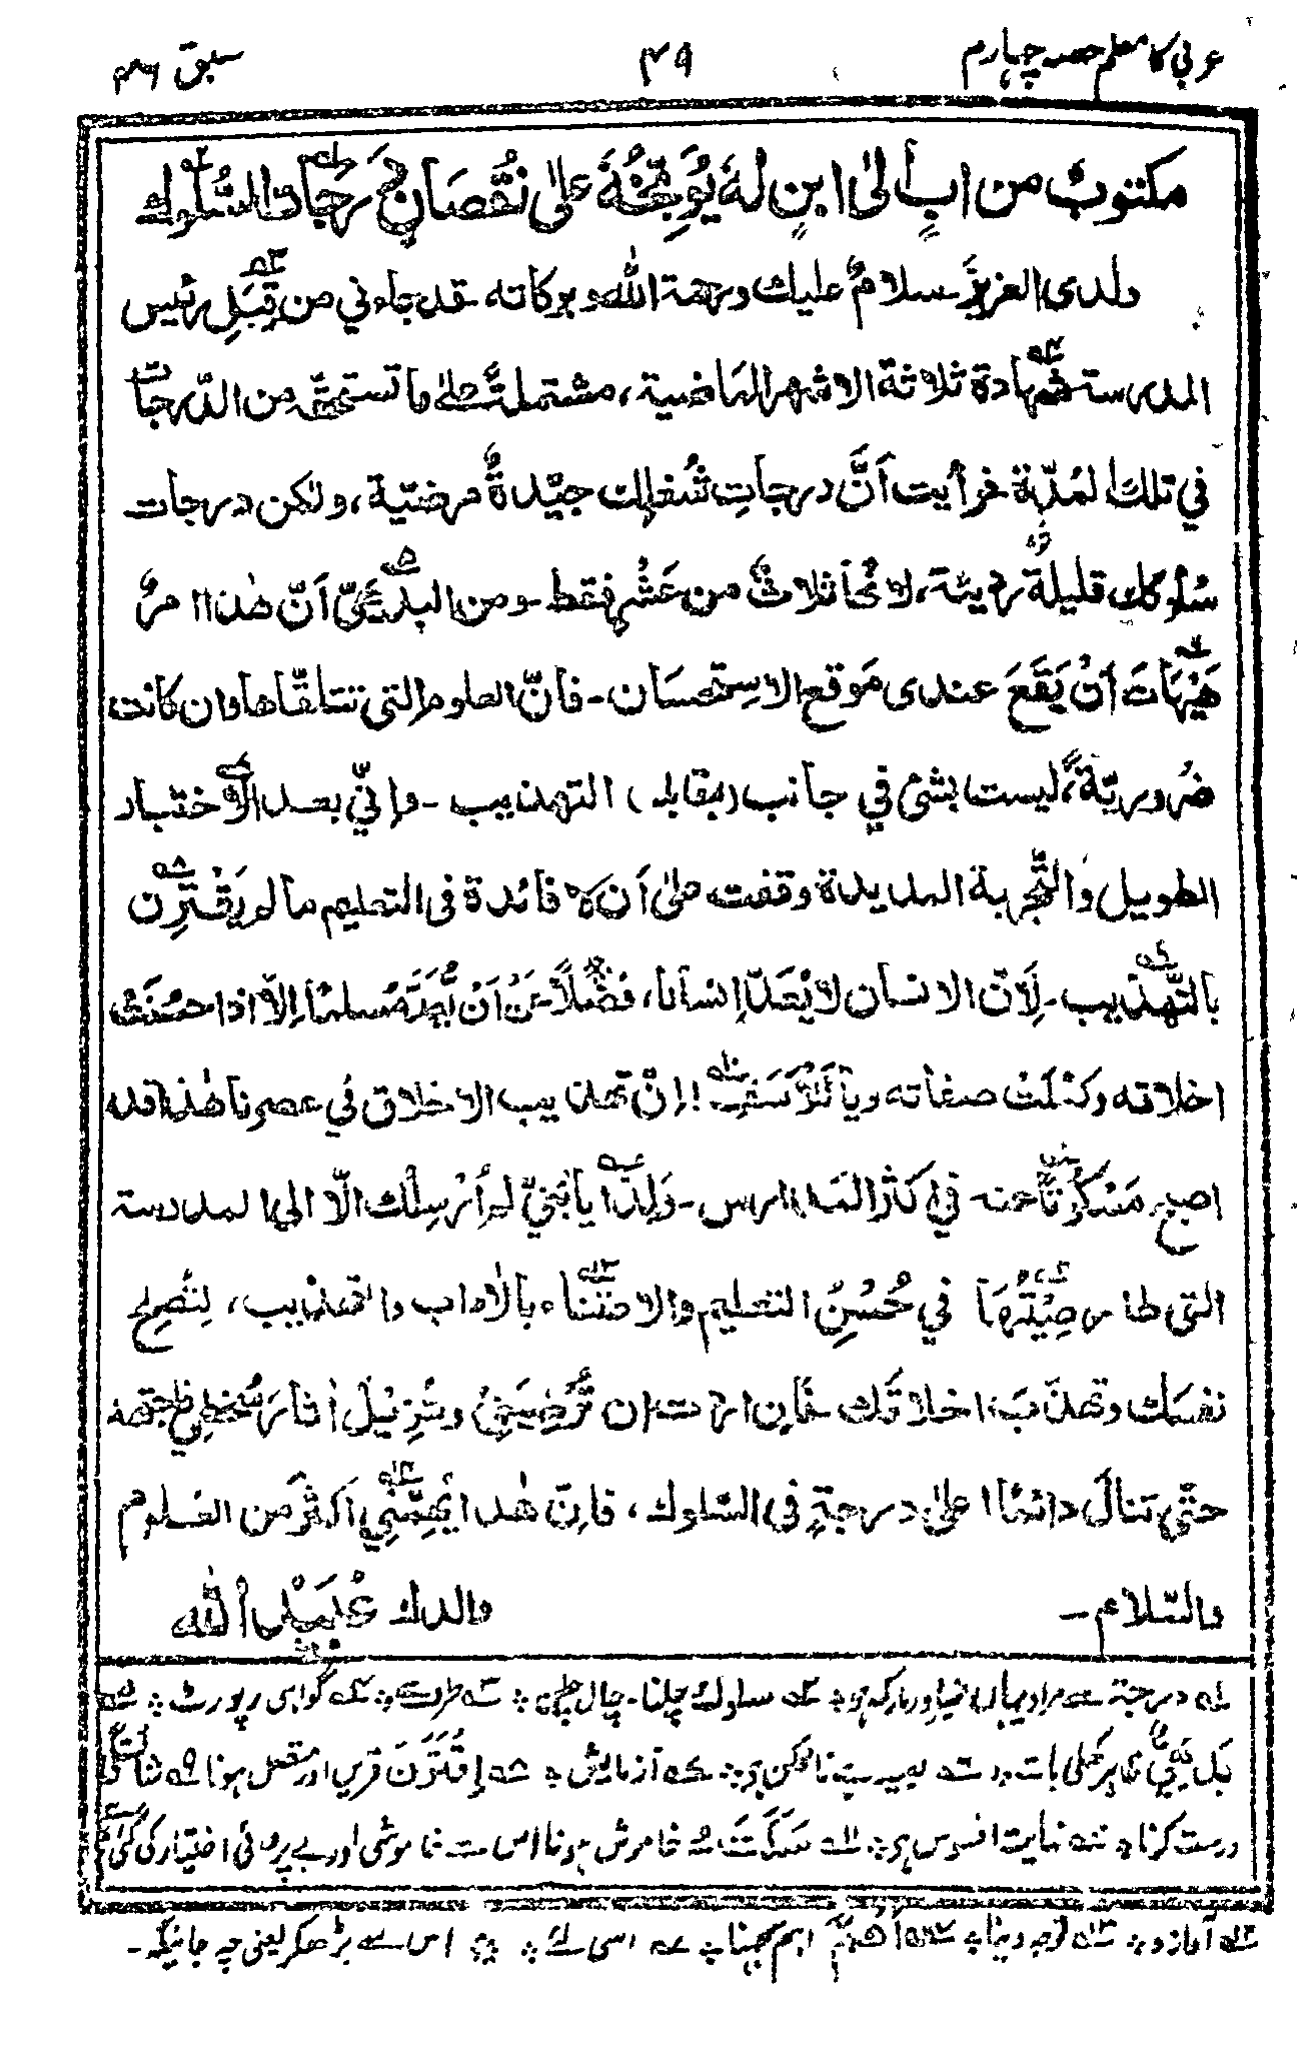 عربی کا معلم حصہ چہارم ۴۹ سبق ۴۶
مكتوبٌ من ابٍ الىٰ ابنٍ لهٗ يُوَبِّخُهٗ علىٰ نُقْصَانِ دَرَجَاتِ السُّلوك
ولدى العزيزَ - سلامٌ عليك ورحمة الله وبركاته - قد جاءني من قِبَلِ رئيس
المدرسة شَهادة ثلاثة الاشهر الماضية، مشتملةً علىٰ ما تستحقّه من الدّرجات
في تلك المُدّة فرأيت أنَّ درجاتِ شُغلِك جيّدةٌ مرضيّة، ولٰكن درجات
سُلوكك قليلةٌ رديئة، لأنّها ثلاثٌ من عَشْرٍ فقط - ومن البديهيّ أنّ هٰذا امرٌ
هَيْهَاتَ أنْ يَقَعَ عندى مَوقع الاستحسان - فانّ العلوم التي تتلقّاها وان كانت
ضُروريّةً، ليست بشئ في جانب (بمقابلہ) التهذيب - وإنّي بعد الاختبار
الطويل والتَّجربة المديدة وقفت علىٰ أن لا فائدة فى التعليم ما لم يَقْتَرِن
بالتَّهذيب - لِأنّ الانسان لا يُعَدّ إنسانا، فضْلًا عَنْ اَنْ يُّعَدَّ مُسلمًا اِلّا اذا حسُنَتْ
اخلاقه وكمُلَتْ صفاته ويا لَلْأَسَفِ! إنّ تهذيب الاخلاق في عصرنا هٰذا قد
اصبح مَسْكُوتًا عنه في اكثر المدارس - وَلِذا يا بُنيّ لم أُرْسِلْك الّا الى المدرسة
التى طار صِيْتُهَا في حُسْنِ التعليم والاعتناء بالآداب والتهذيب، لِتُصلِح
نفسَك وتهذّبَ اخلاقَك - فَاِن اردت ان تُرْضِيَنِيْ وتُزِيْلَ اٰثارَ سُخطِي فاجتهد
حتّى تنالَ دائمًا اعلىٰ درجةٍ فى السّلوك، فاِنّ هٰذا يُهِمُّنِي اَكثرَ من العلوم
والسّلام - والدك عُبَيْدُ الله
لہ درجۃ سے مراد یہاں نمبر اور مارک ہے ؞ ۲ سلوك چلنا - چال چلن ؞ ۳ طرف سے ؞ ۴ گواہی رپورٹ ؞ ۵
بَدِيْهِيٌّ ظاہر کھلی بات ؞ ۶ بعید ہے ناممکن ہے ؞ ۷ آزمایش ؞ ۸ اِقْتَرَنَ قریں اور متصل ہونا ۹
درست کرنا ؞ ۱۰ نہایت افسوس ہے ؞ ۱۱ سَكَتَ خاموش ہونا اس سے خاموشی اور بے پروائی اختیار کی گئی
۱۲ آوازہ ؞ ۱۳ توجہ دینا ؞ ۱۴ اَهَمَّ اہم سمجھنا ؞ اسی لئے ؞ اس سے بڑھکر یعنی چہ جائیکہ -